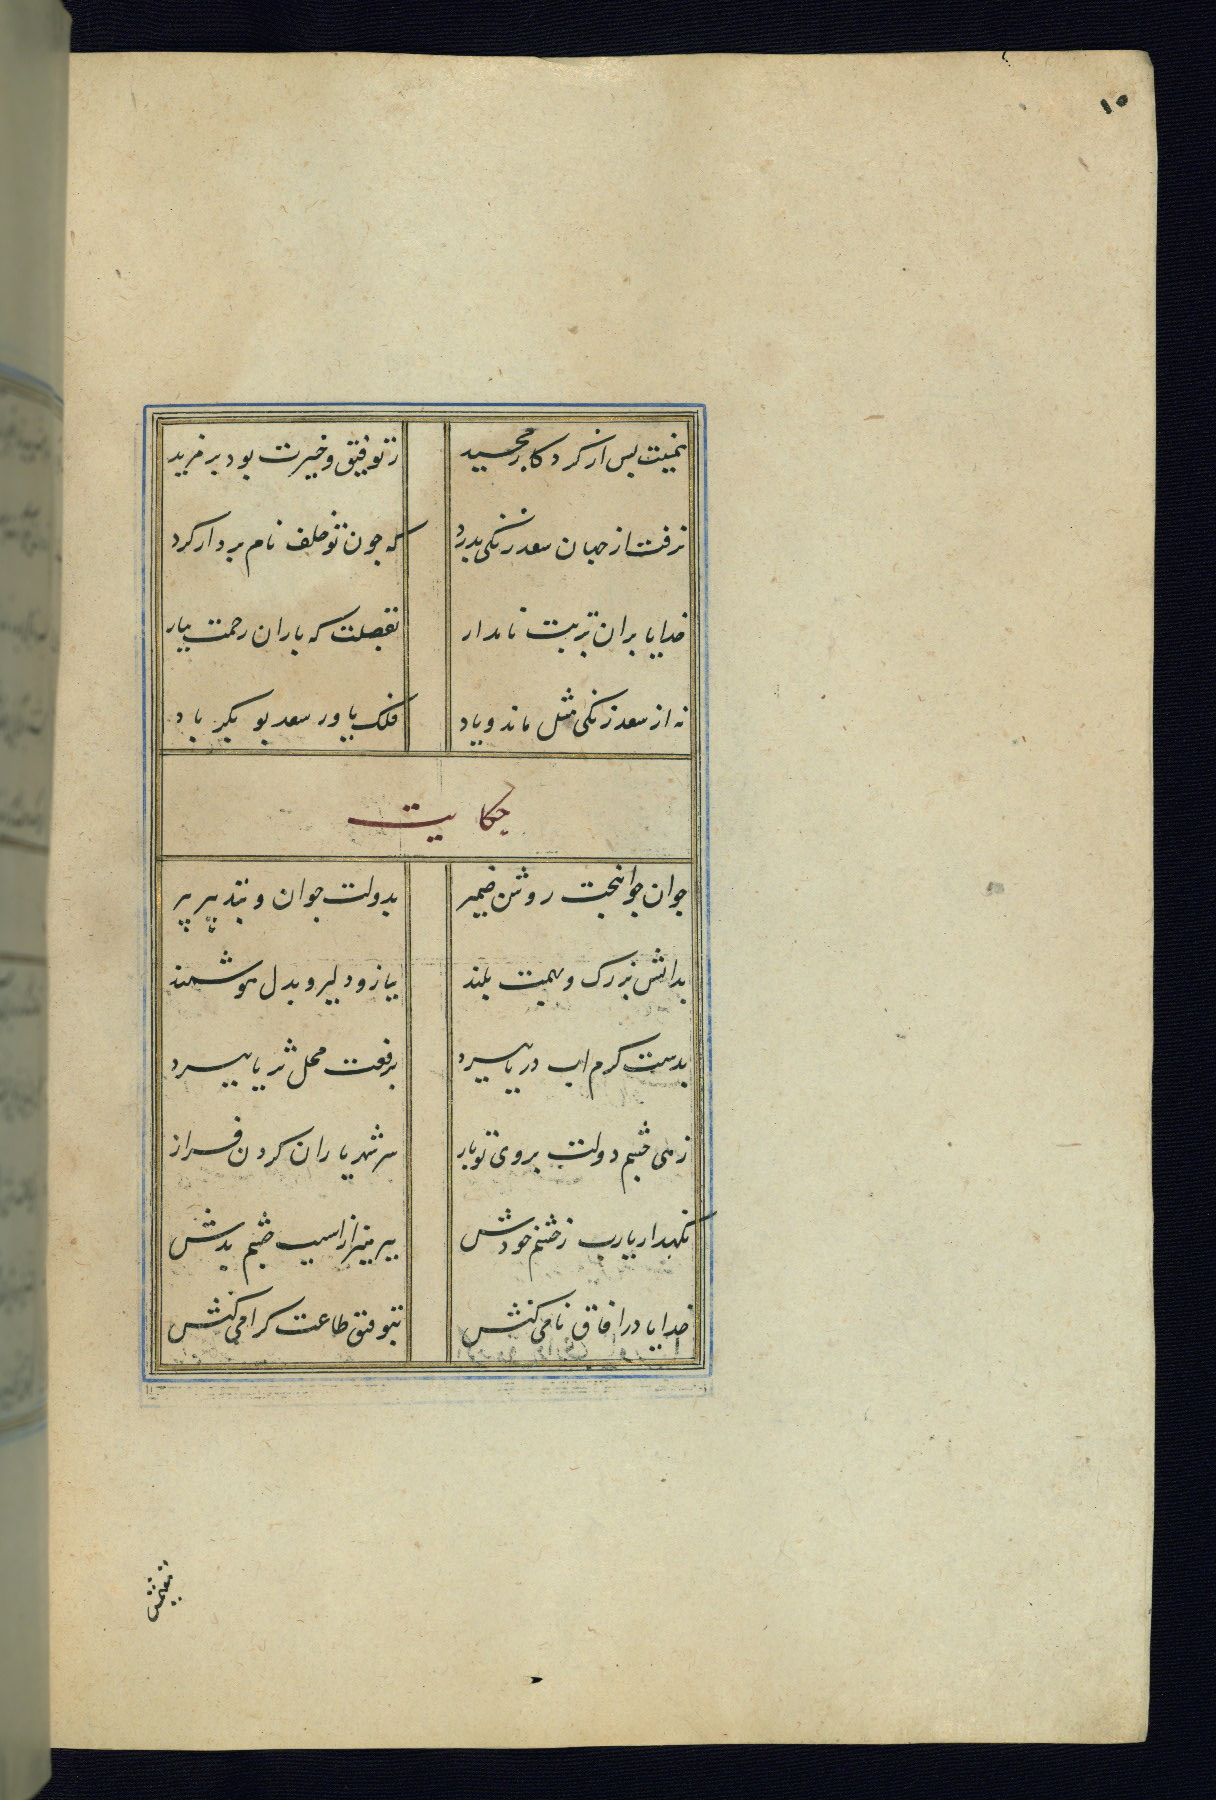 ۱۵
همینت بس از کردکار مجید ز توفیق و خیرت بود بر مزید
نرفت از جهان سعد زنکی بدرد که جون تو خلف نام بردار کرد
خدایا بران تربت نامدار بفضلت که باران رحمت ببار
نه از سعد زنکی مثل ماند و یاد فلک یاور سعد بو بکر باد
حکایت
جوان جوانبخت روشن ضمیر بدولت جوان و بتدبیر پیر
بدانش بزرک و بهمت بلند ببازو دلیر و بدل هوشمند
بدست کرم اب دریا ببرد برفعت محل ثریا ببرد
زهی چشم دولت بروی تو باز سر شهریاران کردن فراز
نکهدار یارب ز چشم خودش بپرهیز از اسیب چشم بدش
خدایا در افاق نامی کنش بتوفیق طاعت کرامی کنش